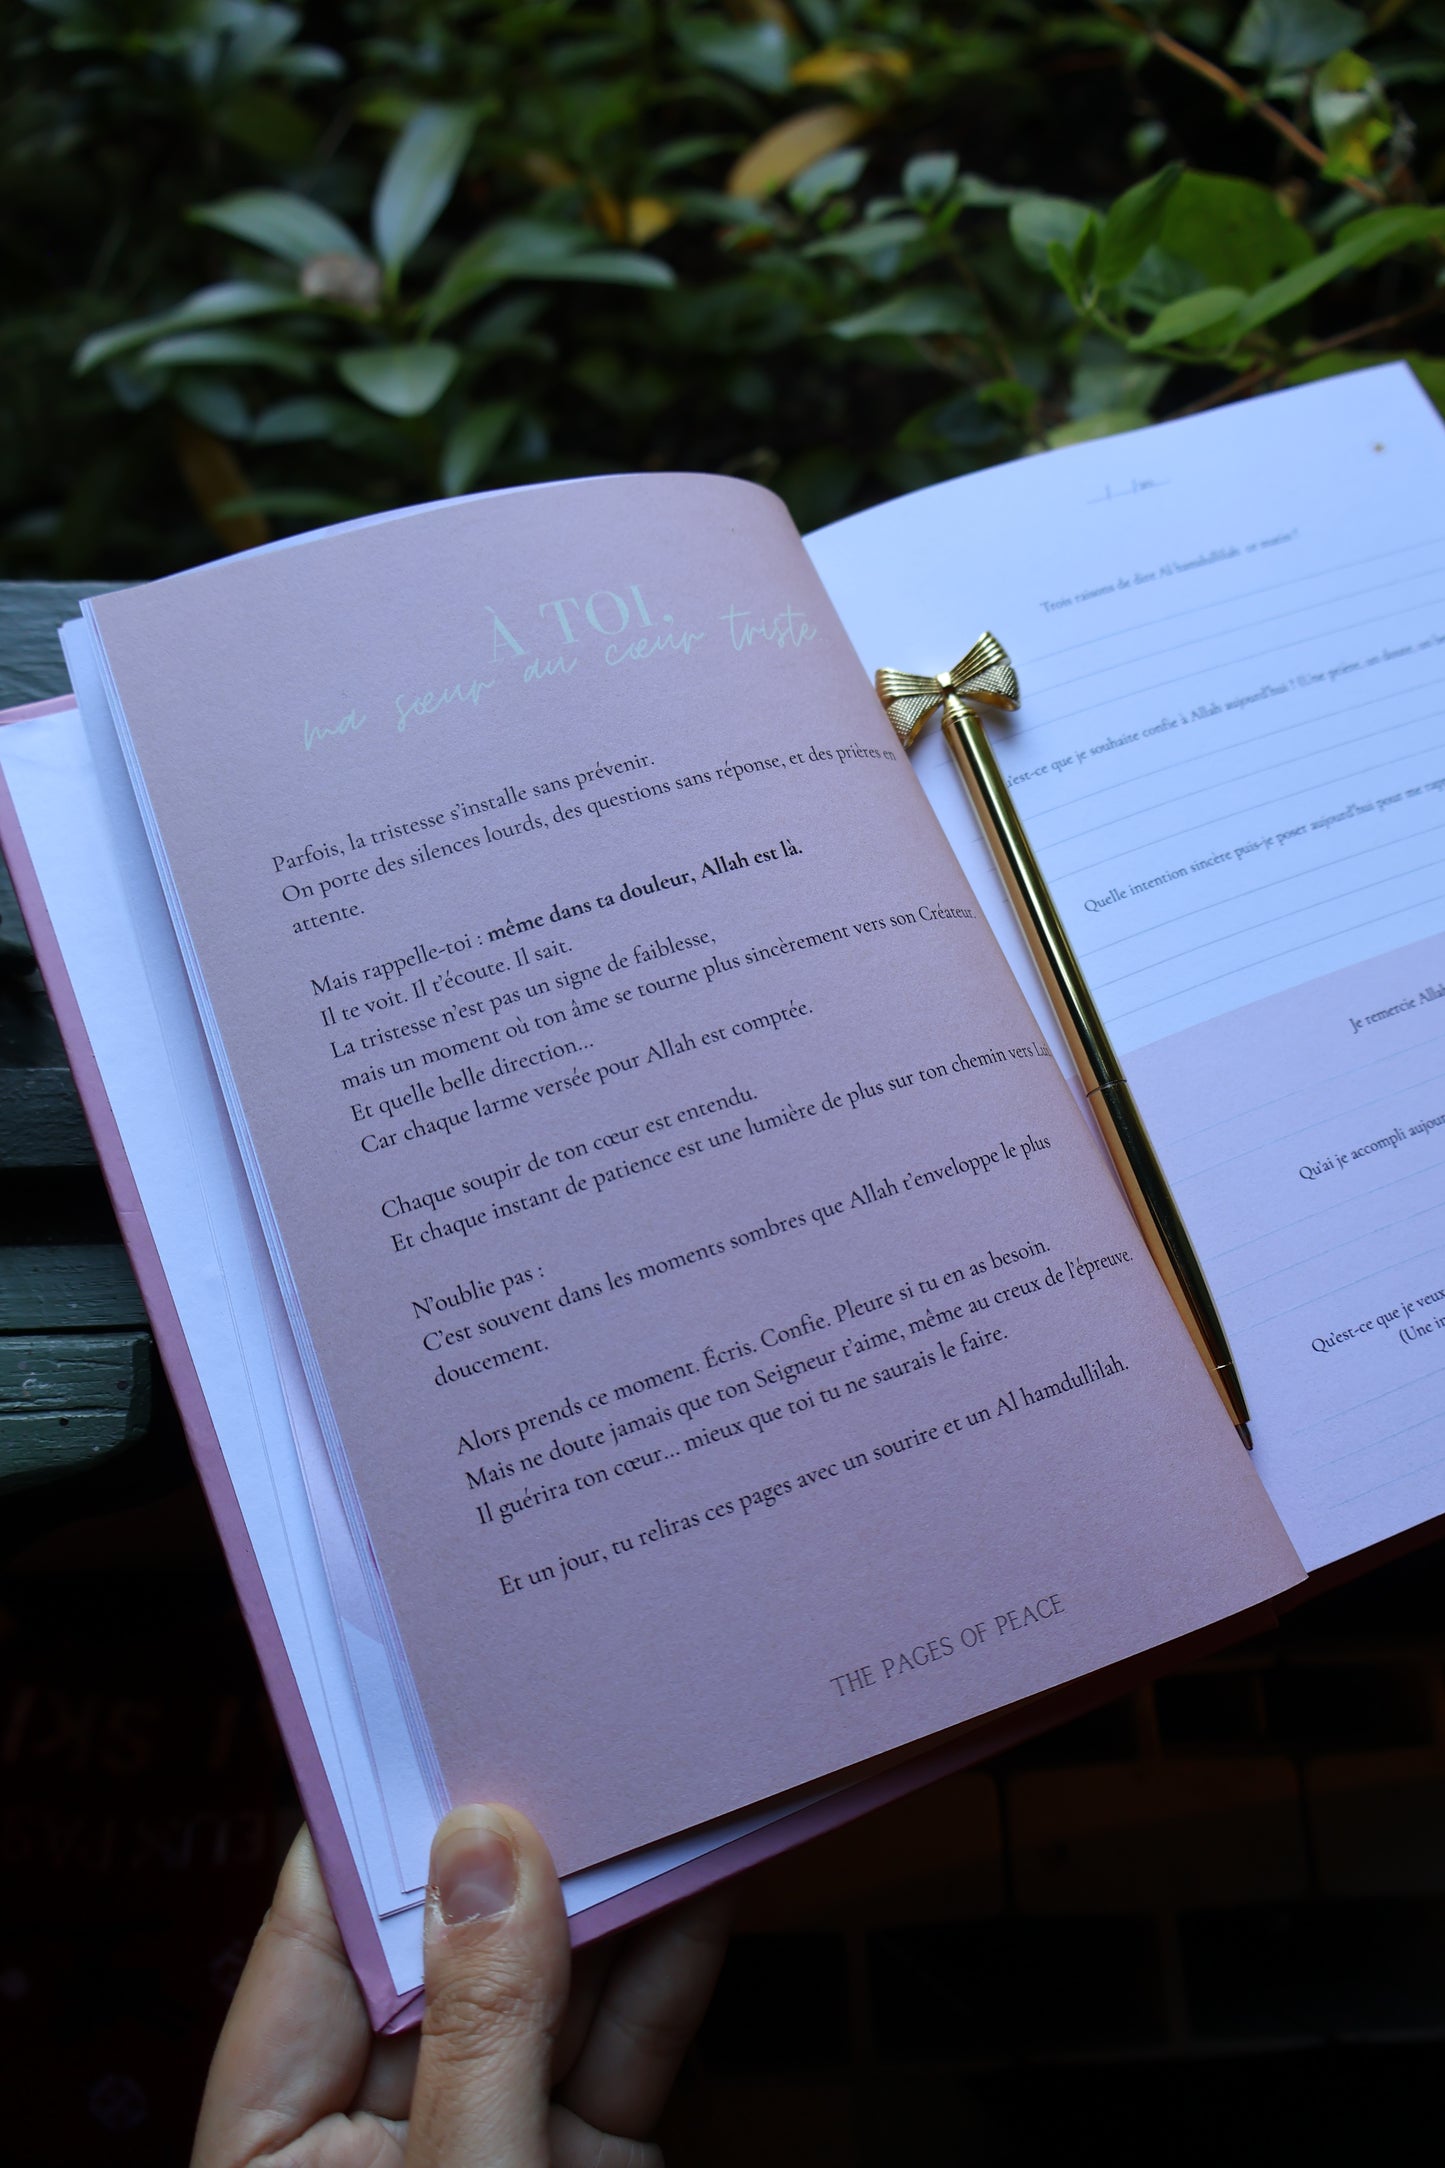 À TOI,
ma sœur au cœur triste
Parfois, la tristesse s'installe sans prévenir.
On porte des silences lourds, des questions sans réponse, et des prières en
attente.
Mais rappelle-toi : même dans ta douleur, Allah est là.
Il te voit. Il t'écoute. Il sait.
La tristesse n'est pas un signe de faiblesse,
mais un moment où ton âme se tourne plus sincèrement vers son Créateur.
Et quelle belle direction...
Car chaque larme versée pour Allah est comptée.
Chaque soupir de ton cœur est entendu.
Et chaque instant de patience est une lumière de plus sur ton chemin vers Lui.
N'oublie pas :
C'est souvent dans les moments sombres que Allah t'enveloppe le plus
doucement.
Alors prends ce moment. Écris. Confie. Pleure si tu en as besoin.
Mais ne doute jamais que ton Seigneur t'aime, même au creux de l'épreuve.
Il guérira ton cœur... mieux que toi tu ne saurais le faire.
Et un jour, tu reliras ces pages avec un sourire et un Al hamdullilah.
THE PAGES OF PEACE
Trois raisons de dire Al hamdullilah ce matin ?
est-ce que je souhaite confie à Allah aujourd'hui ? (Une prière, un doute, un
Quelle intention sincère puis-je poser aujourd'hui pour me
Je remercie Allah
Qu'ai je accompli
Qu'est-ce que je veux
(Une